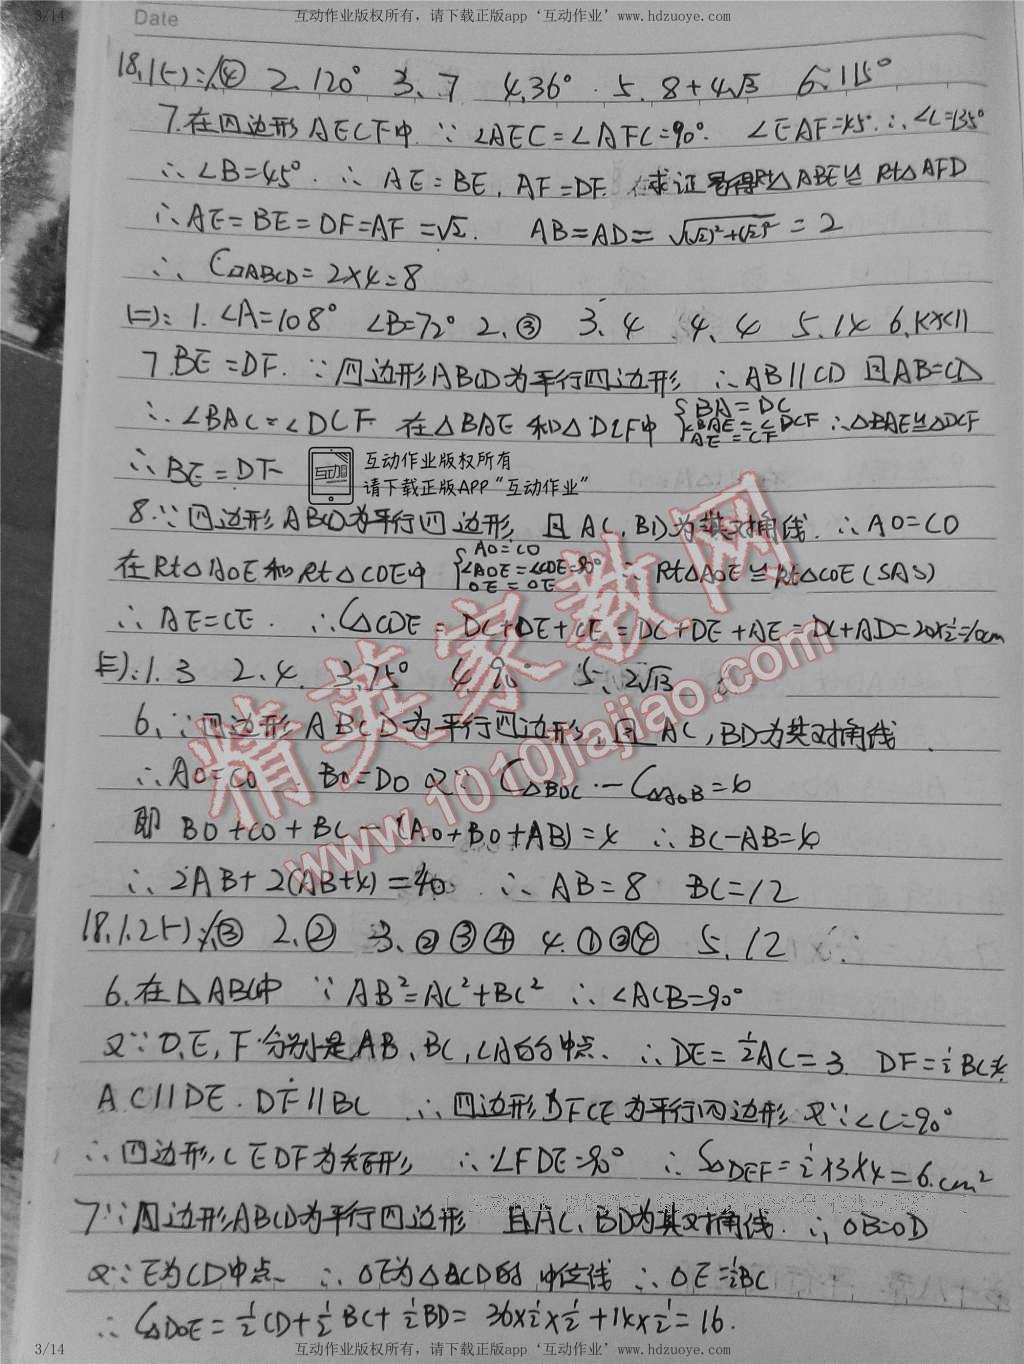 3/14 互动作业版权所有，请下载正版app‘互动作业’www.hdzuoye.com
Date
18.1(一):1.④ 2.120° 3、7 4.36° 5.8+4√3 6.115°
7.在四边形AECF中 ∵∠AEC=∠AFC=90°. ∠EAF=45°.∴∠C=135°
∴∠B=45°.∴AE=BE,AF=DF. 求证易得Rt△ABE≌Rt△AFD
∴AE=BE=DF=AF=√2. AB=AD=√(√2)²+(√2)²=2
∴C▱ABCD=2×4=8
(二):1.∠A=108° ∠B=72° 2.③ 3.4 4.4 5.14 6.1<x<11
7.BE=DF.∵四边形ABCD为平行四边形 ∴AB∥CD 且AB=CD
∴∠BAC=∠DCF 在△BAE和△DCF中{BA=DC ∠BAE=∠DCF AE=CF ∴△BAE≌△DCF
∴BE=DF
互动 互动作业版权所有
请下载正版APP“互动作业”
8.∵四边形ABCD为平行四边形,且AC,BD为其对角线.∴AO=CO
在Rt△AOE和Rt△COE中{AO=CO ∠AOE=∠COE=90° OE=OE ∴Rt△AOE≌Rt△COE(SAS)
∴AE=CE.∴C△CDE=DC+DE+CE=DC+DE+AE=DC+AD=20×½=10cm
(三):1.3 2.4. 3.75° 4.90° 5、2√13
6、∵四边形ABCD为平行四边形,且AC,BD为其对角线.
∴AO=CO BO=DO 又∵C△BOC-C△AOB=4
即BO+CO+BC-(AO+BO+AB)=4 ∴BC-AB=4
∴2AB+2(AB+4)=40.∴AB=8 BC=12
18.1.2(一)1.③ 2.② 3.②③④ 4.①③④ 5.12
6.在△ABC中 ∵AB²=AC²+BC² ∴∠ACB=90°
又∵D,E,F分别是AB、BC,CA的中点、∴DE=½AC=3. DF=½BC=4.
AC∥DE.DF∥BC ∴四边形DFCE为平行四边形 又∵∠C=90°
∴四边形CEDF为矩形 ∴∠FDE=90° ∴S△DEF=½×3×4=6cm²
7∵四边形ABCD为平行四边形 且AC、BD为其对角线.∴OB=OD
又∵E为CD中点、∴OE为△BCD的中位线 ∴OE=½BC
∴C△DOE=½CD+½BC+½BD=36×½×½+14×½=16.
精英家教网
www.1010jiajiao.com
3/14 互动作业版权所有，请下载正版app‘互动作业’www.hdzuoye.com